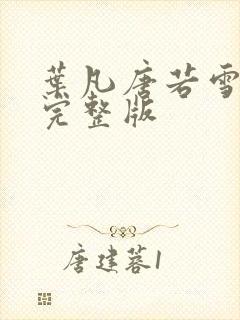 葉凡唐若雪
完整版
唐建蓉1